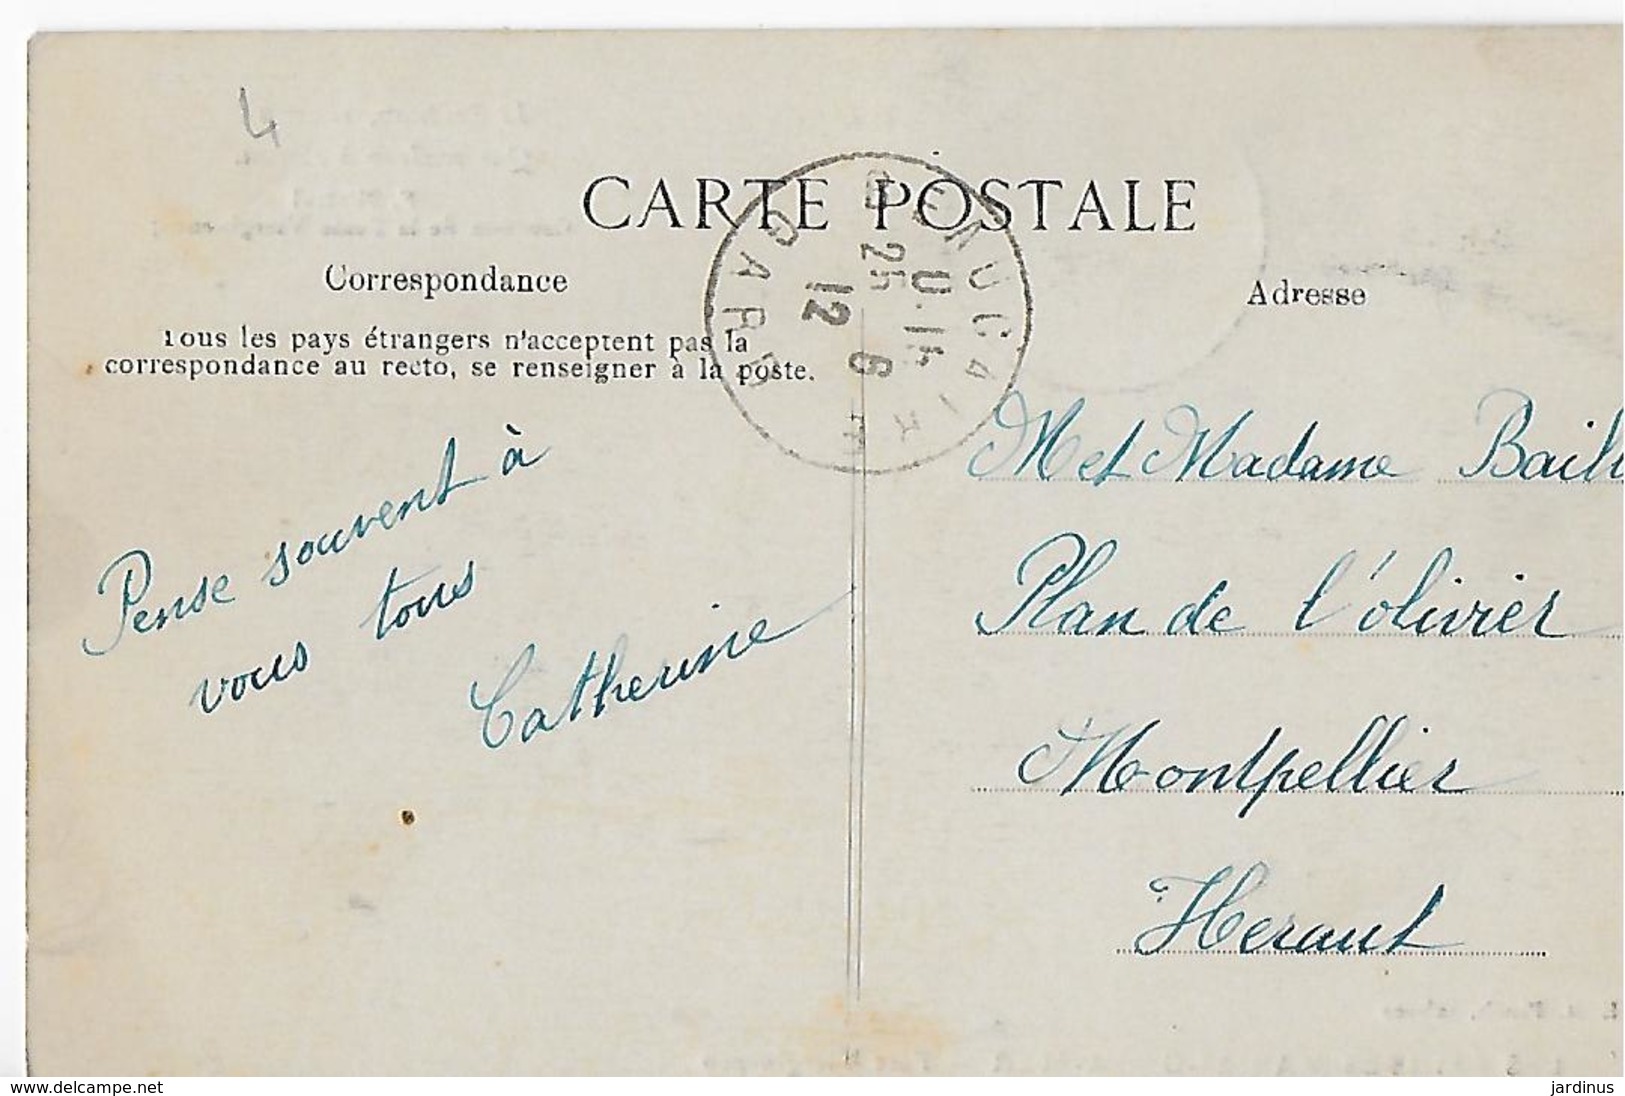 4
CARTE POSTALE
Correspondance
Tous les pays étrangers n'acceptent pas la
correspondance au recto, se renseigner à la poste.
GARE
25
12
6
Pense souvent à
vous tous
Catherine
Adresse
M et Madame
Plan de l'olivier
Montpellier
Herault
www.delcampe.net
jardinus